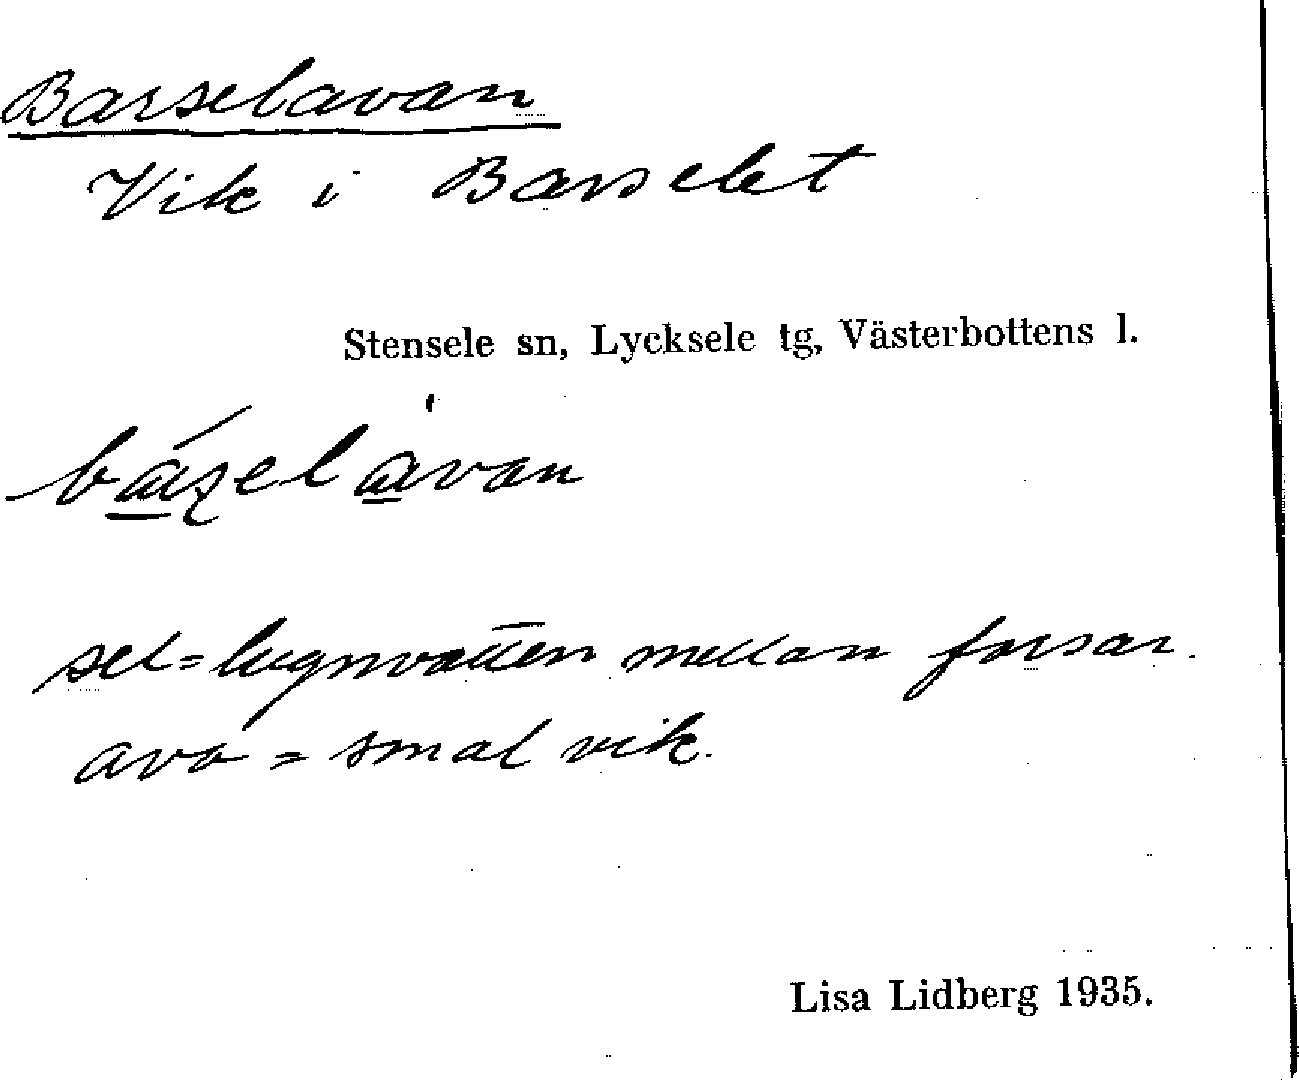 Barselavan
Vik i Barselet
Stensele sn, Lycksele tg, Västerbottens l.
sel = lugnvatten mellan forsar.
ava = smal vik.
Lisa Lidberg 1935.